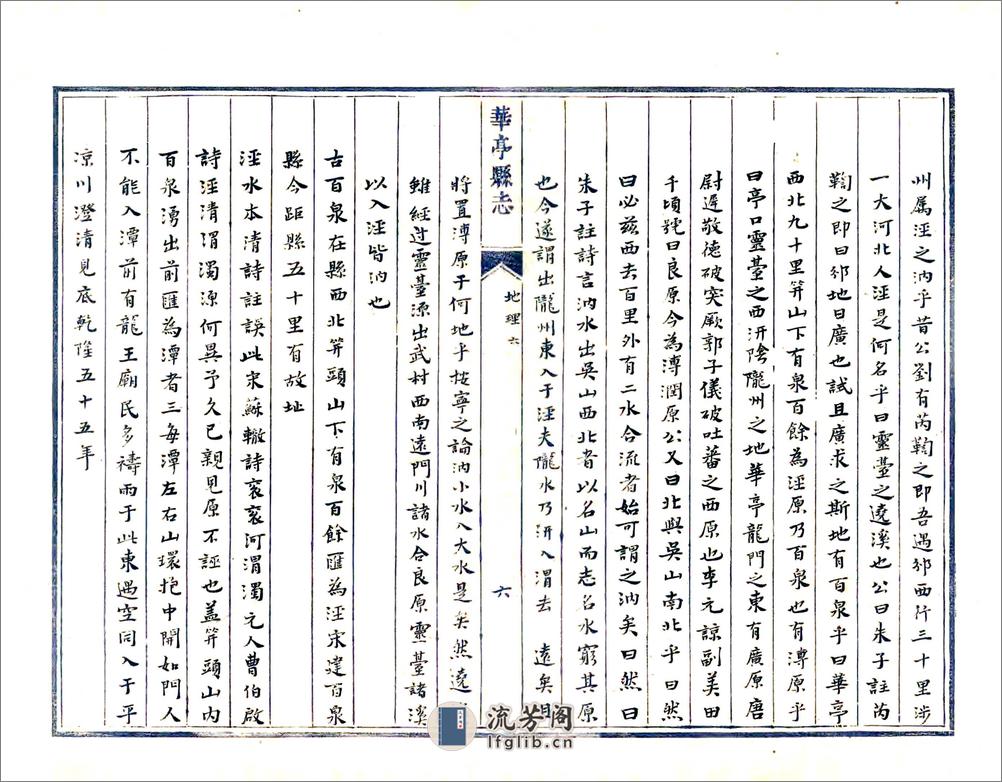 州属涇之汭乎昔公劉有芮鞫之即吾遇邠西行三十里涉
一大河北人涇是何名乎曰靈臺之遶溪也公曰朱子註芮
鞫之即曰邠地曰廣也試且廣求之斯地有百泉乎曰華亭
西北九十里笄山下有泉百餘為涇原乃百泉也有溥原乎
曰亭口靈臺之西汧陰隴州之地華亭龍門之東有廣原唐
尉遲敬德破突厥郭子儀破吐蕃之西原也李元諒副美田
千頃號曰良原今為溥澗原公又曰北與吳山南北乎曰然
曰必兹西去百里外有二水合流者始可謂之汭矣曰然曰
朱子註詩言汭水出吳山西北者以名山而志名水窮其原
也今遂謂出隴州東入于涇夫隴水乃汧入渭去 遠矣且
將置溥原于何地乎按寧之論汭小水入大水是矣然遶
雖經过靈臺源出武村西南遠門川諸水合良原靈臺諸溪
以入涇皆汭也
古百泉在縣西北笄頭山下有泉百餘匯為涇宋建百泉
縣今距縣五十里有故址
涇水本清詩註誤此宋蘇轍詩袞袞河渭濁元人曹伯啟
詩涇清渭濁源何異予久已親見原不誣也蓋笄頭山内
百泉湧出前匯為潭者三每潭左右山環抱中開如門人
不能入潭前有龍王廟民多禱雨于此東遇空同入于平
凉川澄清見底乾隆五十五年
華亭縣志
地理 六
六
流芳阁
lfglib.cn